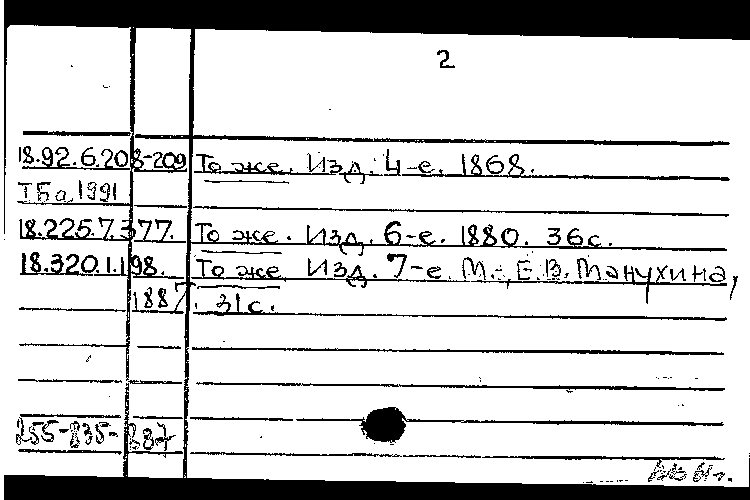 2
18.92.6.208-209 То же. Изд. 4-е. 1868.
ТБа 1991
18.225.7.377. То же. Изд. 6-е. 1880. 36с.
18.320.1.198. То же Изд. 7-е. М., Е.В. Манухина,
1887. 31с.
255-835-887
61г.